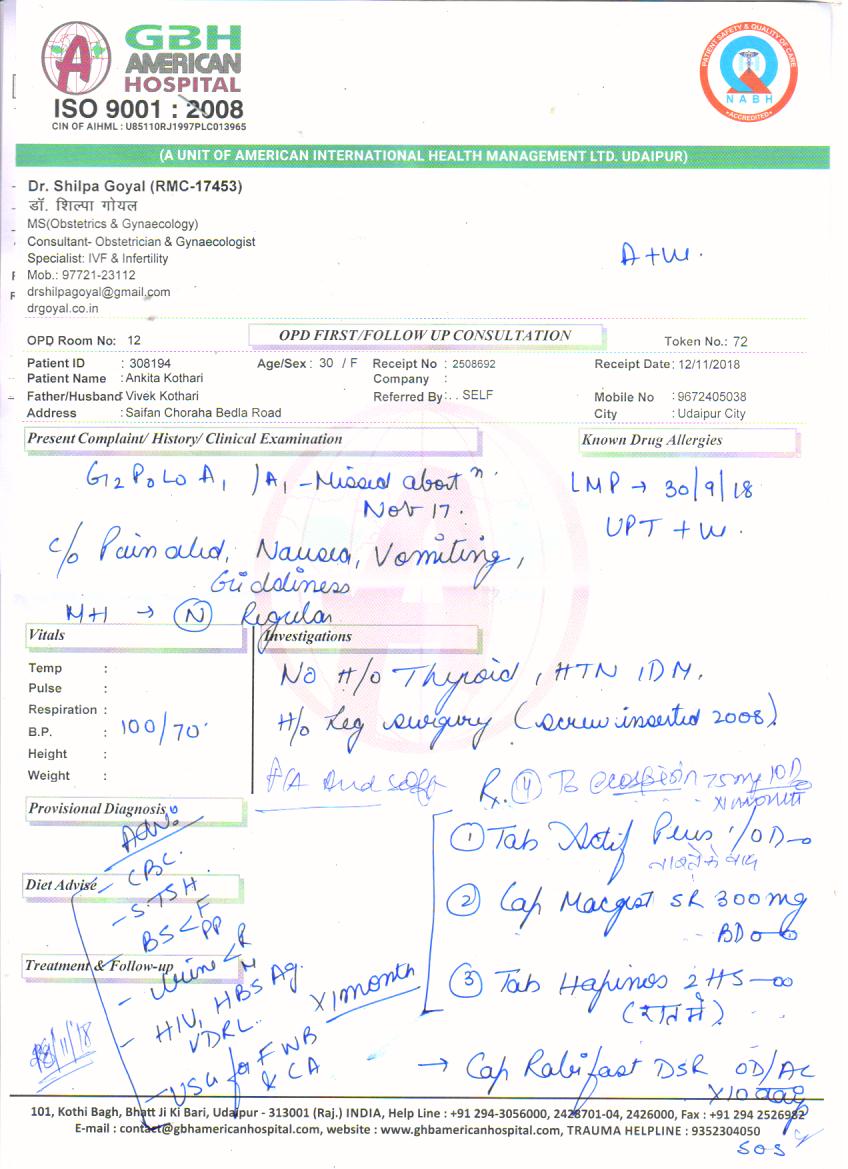 GBH
AMERICAN
HOSPITAL
ISO 9001 : 2008
CIN OF AIHML : U85110RJ1997PLC013965
PATIENT SAFETY & QUALITY OF CARE
NABH
ACCREDITED
(A UNIT OF AMERICAN INTERNATIONAL HEALTH MANAGEMENT LTD. UDAIPUR)
Dr. Shilpa Goyal (RMC-17453)
डॉ. शिल्पा गोयल
MS(Obstetrics & Gynaecology)
Consultant- Obstetrician & Gynaecologist
Specialist: IVF & Infertility
Mob.: 97721-23112
drshilpagoyal@gmail.com
drgoyal.co.in
OPD Room No: 12 OPD FIRST/FOLLOW UP CONSULTATION Token No.: 72
Patient ID : 308194 Age/Sex : 30 / F Receipt No : 2508692 Receipt Date: 12/11/2018
Patient Name : Ankita Kothari Company :
Father/Husband: Vivek Kothari Referred By: . . SELF Mobile No : 9672405038
Address : Saifan Choraha Bedla Road City : Udaipur City
Present Complaint/ History/ Clinical Examination Known Drug Allergies
G2 P0 L0 A1 /A1 - Missed abortn.
Nov 17.
LMP → 30/9/18
UPT +
c/o Pain abd, Nausea, Vomiting,
Giddiness
MH → N Regular
Vitals Investigations
Temp :
Pulse :
Respiration :
B.P. : 100/70
Height :
Weight :
No H/o Thyroid, HTN, DM.
H/o leg surgery (screw inserted 2008)
P/A soft
Rx. 4 75mg 1OD
X1month
Provisional Diagnosis
Adv.
- CBC.
- S.TSH.
BS < F PP
- Urine < R M
- HIV, HBSAg.
VDRL.
- USG for FWB
& CA
Diet Advise
Treatment & Follow-up
X1month
/11/18
1 Tab Actif Plus 1/OD
नाश्ते के बाद
2 Cap Macgest SR 300mg
BD
3 Tab Hapinos 2 HS
(रात में)
→ Cap Rabifast DSR OD/AC
X10
SOS
101, Kothi Bagh, Bhatt Ji Ki Bari, Udaipur - 313001 (Raj.) INDIA, Help Line : +91 294-3056000, 2428701-04, 2426000, Fax : +91 294 2526982
E-mail : contact@gbhamericanhospital.com, website : www.ghbamericanhospital.com, TRAUMA HELPLINE : 9352304050